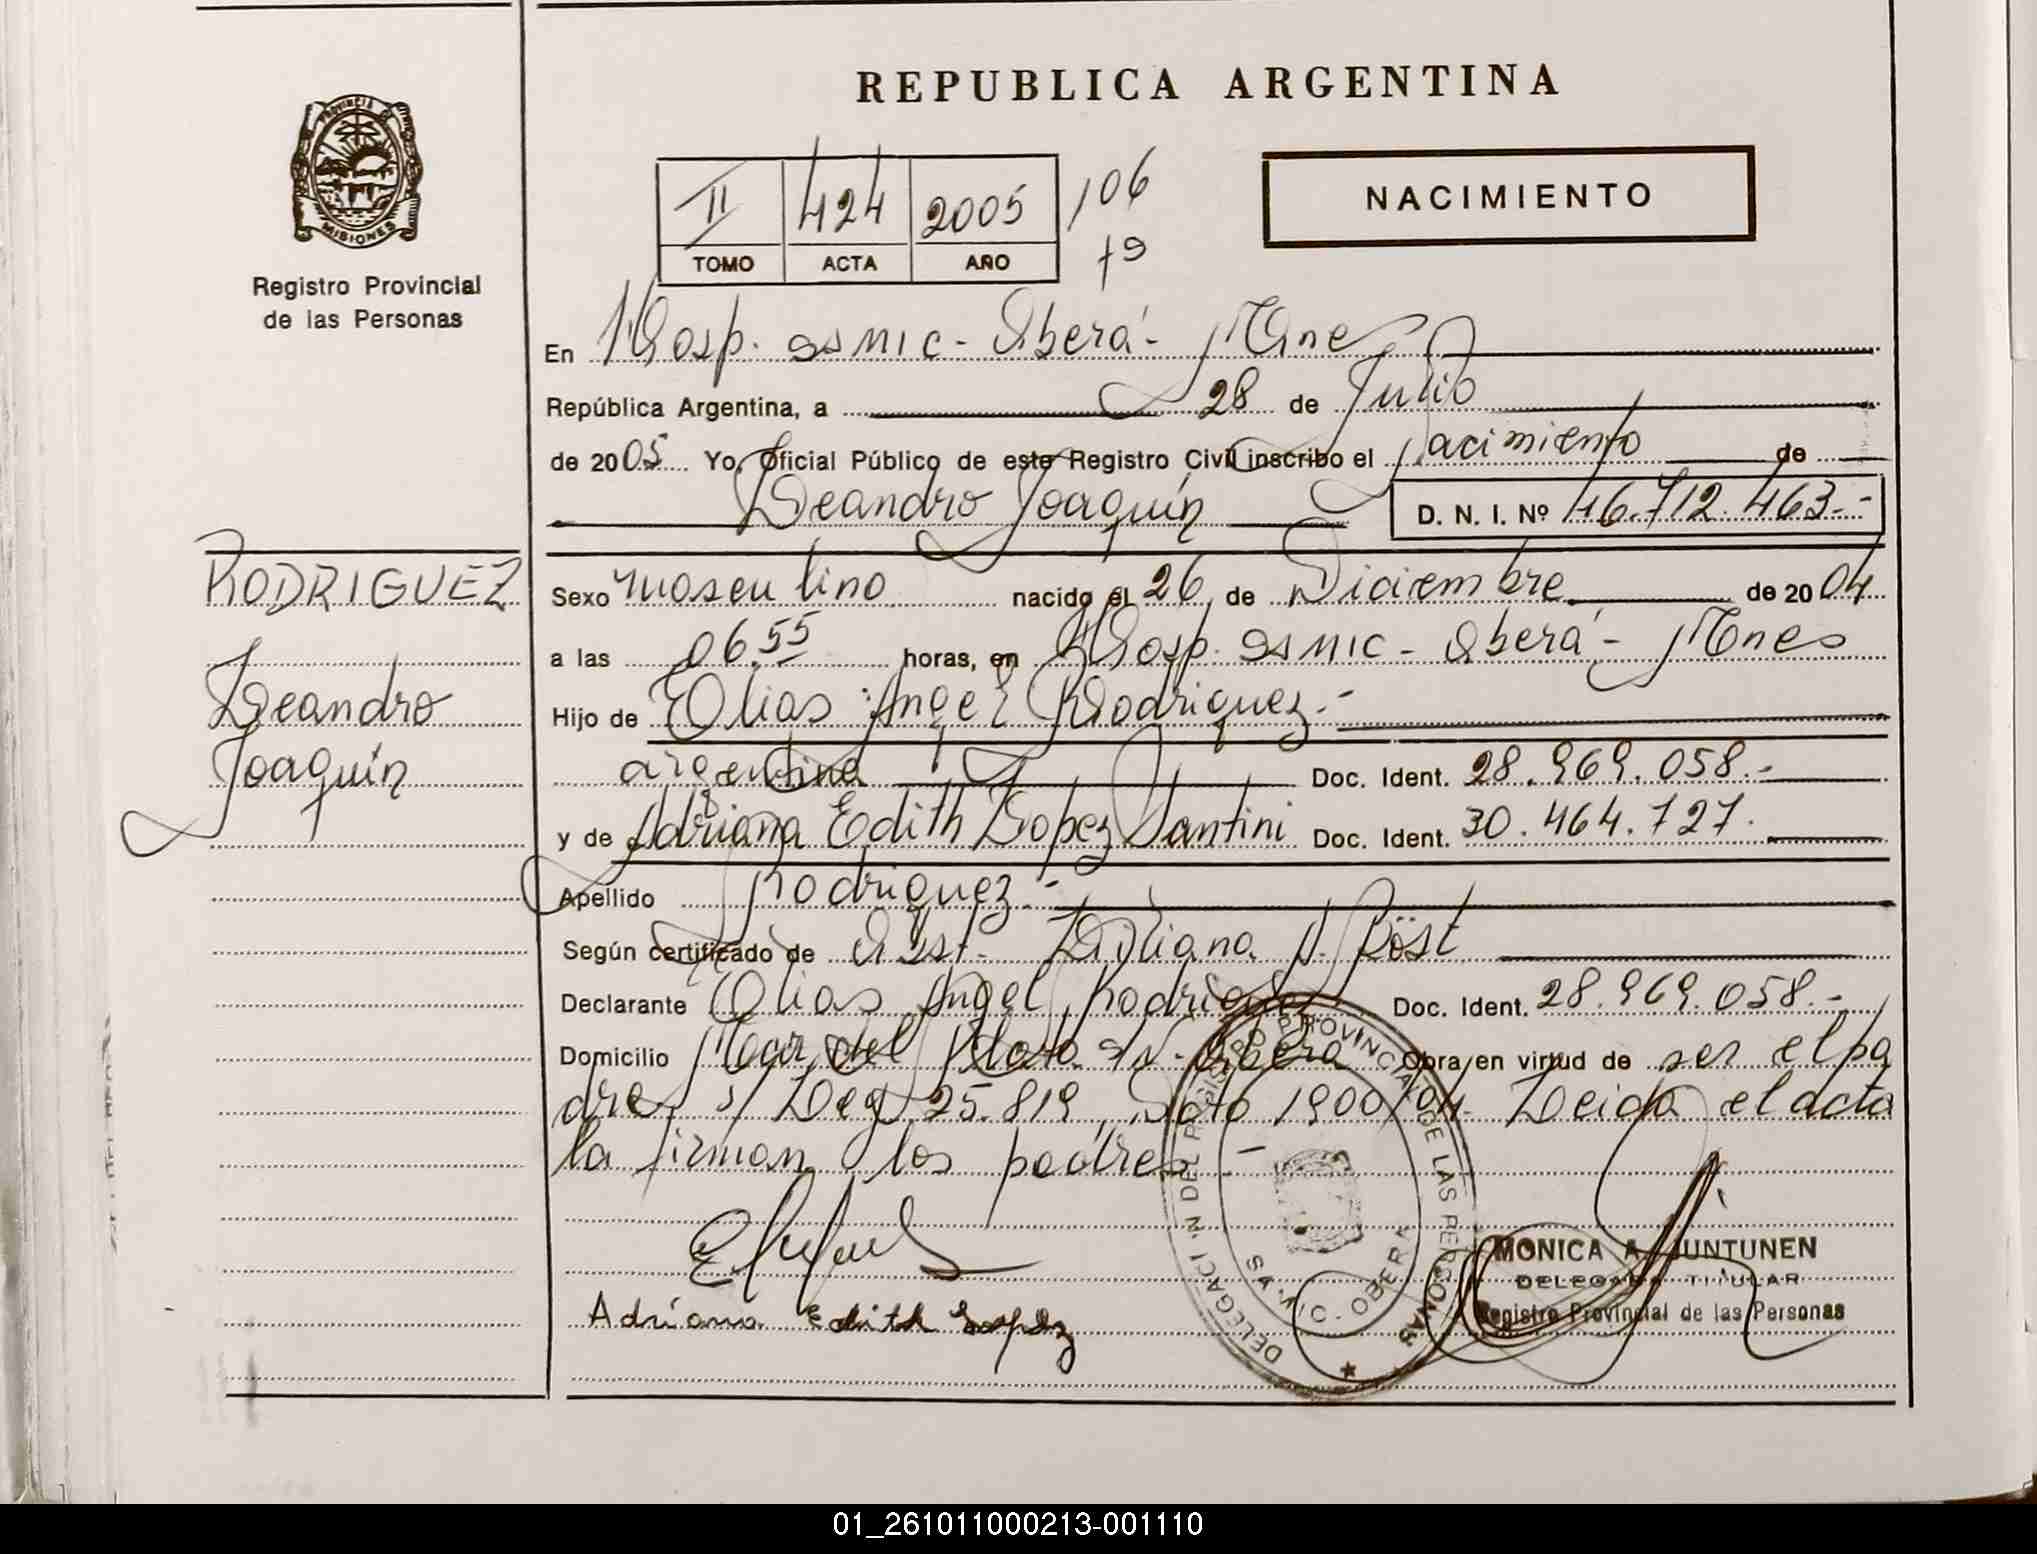 REPUBLICA ARGENTINA
PROVINCIA
MISIONES
Registro Provincial
de las Personas
II 424 2005 106
TOMO ACTA AÑO 79
NACIMIENTO
En Hosp. SAMIC - Oberá - Mnes
República Argentina, a 28 de Julio
de 2005 Yo, Oficial Público de este Registro Civil inscribo el nacimiento de
Leandro Joaquín D. N. I. Nº 46.712.463.-
RODRIGUEZ
Leandro
Joaquín
Sexo masculino nacido el 26 de Diciembre de 2004
a las 06.55 horas, en Hosp. SAMIC - Oberá - Mnes
Hijo de Elias Angel Rodriguez.-
argentina Doc. Ident. 28.969.058.-
y de Adriana Edith Lopez Santini Doc. Ident. 30.464.727.
Apellido Rodriguez.-
Según certificado de Obst. Liliana N. Pöst
Declarante Elias Angel Rodriguez Doc. Ident. 28.969.058.-
Domicilio Mar del Plata s/n - Oberá Obra en virtud de ser el pa
dre s/ Ley 25.819, Dcto 1900/04. Leida el acta
la firman los padres.-
Adriana Edith Lopez
DELEGACI N DEL REGISTRO PROVINCIAL DE LAS PERSONAS
OBERA
MONICA A. JUNTUNEN
DELEGADA TITULAR
Registro Provincial de las Personas
01_261011000213-001110